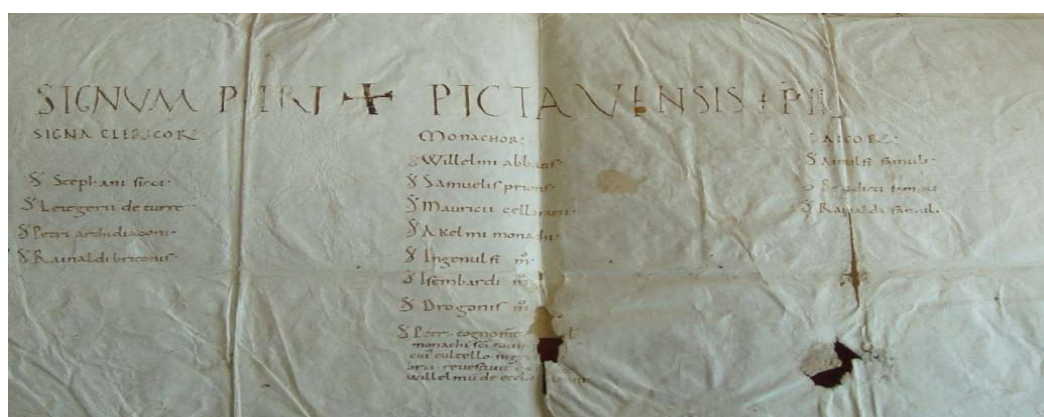 SIGNVM PETRI + PICTAVENSIS EPI
SIGNA CLERICOR
S Stephani
S Letgerii de turre
S Petri archidiaconi
S Rainaldi britonis
MONACHOR
S Willelmi abbatis
S Samuelis prioris
S Mauricii cellararii
S AKelmi monachi
S Ingenulfi m
S Isembardi m
S Drogonis m
S Petri cognom
monachi sci
cui cultello
revestivit
Willelmu de
LAICOR
S Ainulfi famuli
S famuli
S Rainaldi famuli